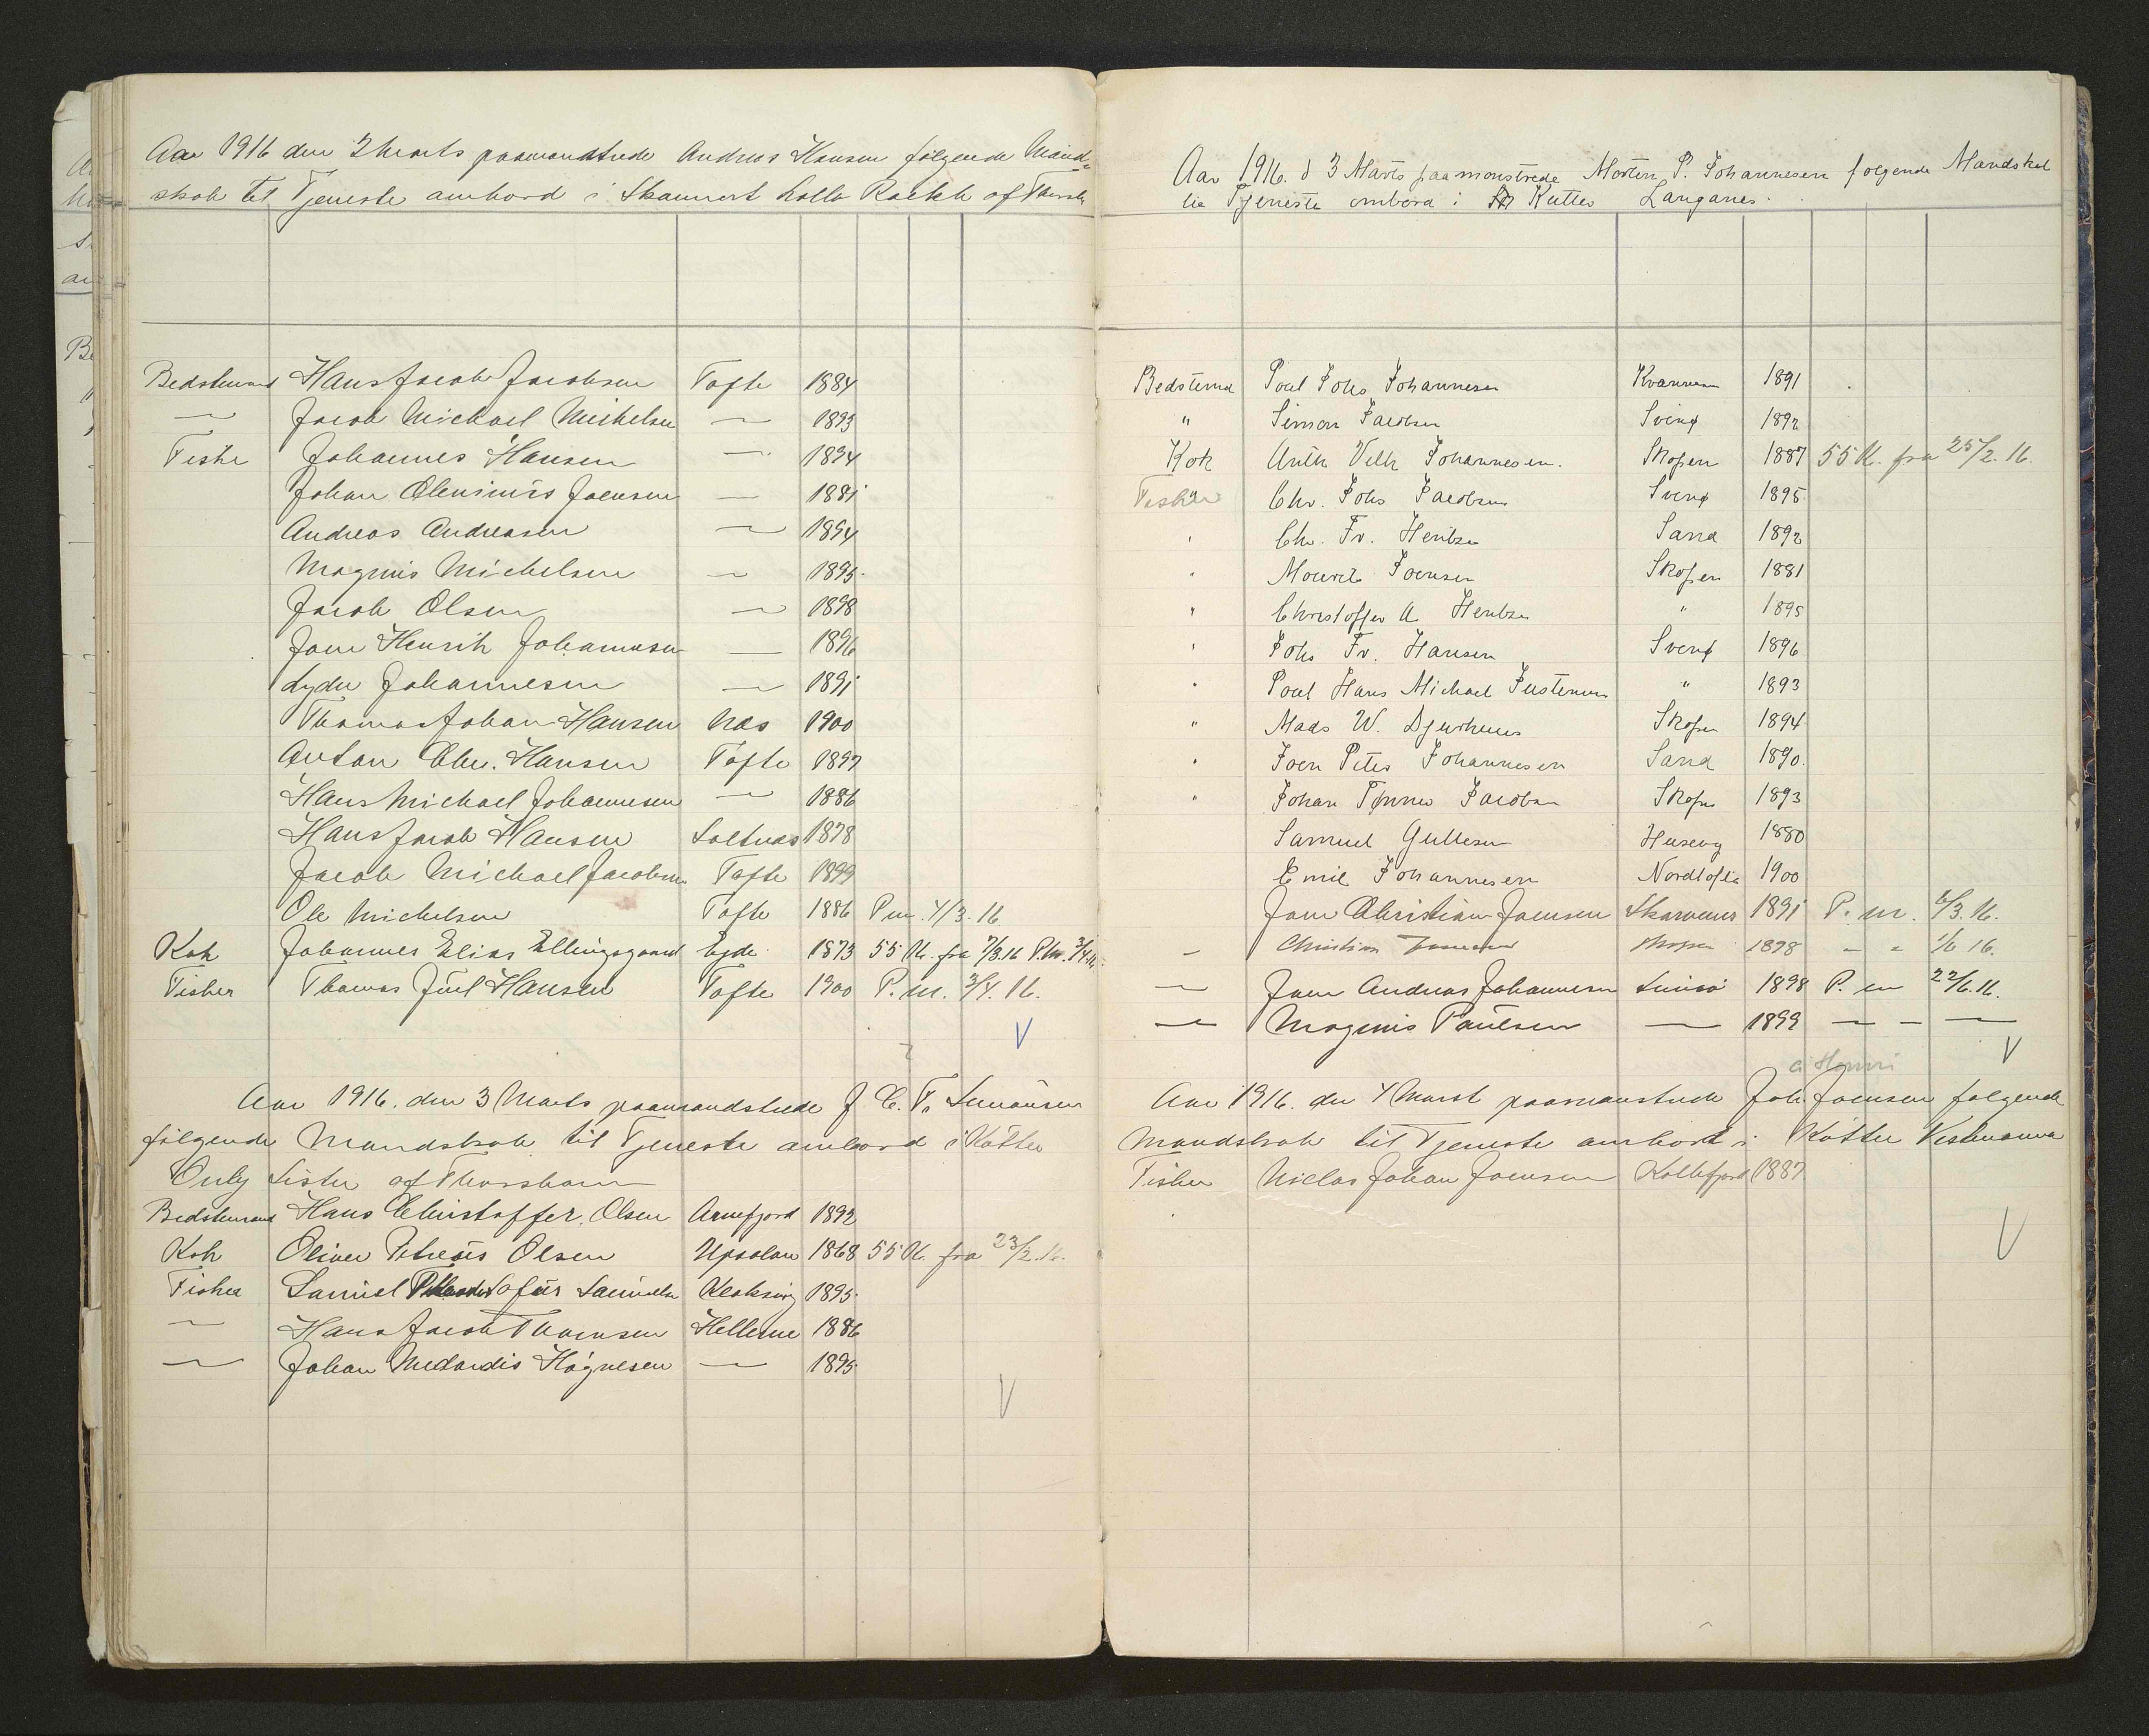 Aar 1916 den 2 Marts paamandstrede Andreas Hansen følgende Mand-
skab til Tjeneste ombord i Skonnert Lalla Rookh af Thorsh
Bedstemand Hans Jacob Jacobsen Tofte 1884
— Jacob Michael Michelsen — 1893
Fisker Johannes Hansen — 1894
Johan Clementis Joensen — 1881
Andreas Andreasen — 1894
Magnus Michelsen — 1895
Jacob Olsen — 1898
Joen Henrik Johannesen — 1896
Lyder Johannesen — 1891
Thomas Johan Hansen Næs 1900
Anton Chr. Hansen Tofte 1897
Hans Michael Johannesen — 1886
Hans Jacob Hansen Saltnæs 1878
Jacob Michael Jacobsen Tofte 1899
Ole Michelsen Tofte 1886 P m. 4/3. 16
Kok Johannes Elias Ellingsgaard Eyde 1873 55 Kr. fra 7/3.16 P.m. 3/4.16.
Fisker Thomas Juel Hansen Tofte 1900 P. m. 3/4. 16.
Aar 1916. den 3 Marts paamandstrede J. C. T. Simonsen
følgende Mandskab til Tjeneste ombord i Kutter
Only Sister af Thorshavn
Bedstemand Hans Christoffer Olsen Arnefjord 1892
Kok Oliver Petreus Olsen Upsalan 1868 55 Kr. fra 23/2.16.
Fisker Samuel Sofus Samuelsen Kloksvig 1895
— Hans Jacob Thomsen Hellerne 1886
— Johan Medardis Høgnesen — 1895
Aar 1916. d 3 Marts paamonstrede Morten P. Johannesen folgende Mandskab
til Tjeneste ombord i Kutter Langanes.
Bedstemd Poul Johs Johannesen Kvannesn 1891
" Simon Jacobsen Svinø 1892
Kok Anth Vilh Johannesen. Skopen 1887 55 Kr. fra 25/2. 16.
Fisker Chr. Johs Jacobsen Svinø 1895
" Chr. Fr. Hentze Sand 1892
" Mourits Joensen Skopen 1881
" Christoffer A Hentze " 1895
" Johs Fr. Hansen Svinø 1896
" Poul Hans Michael Justesen " 1893
" Mads W. Djurhuus Skopen 1894
" Joen Peter Johannesen Sand 1890.
" Johan Tønnes Jacobsen Skopen 1893
Samuel Gullesen Husevig 1880
Emil Johannesen Nordtofte 1900
Joen Christian Joensen Skarvenes 1891 P. m. 6/3. 16.
— Christian Joensen Skopen 1898 — " 1/6 16.
— Joen Andreas Johannesen Svinø 1898 P. m 22/6.16.
— Magnus Poulsen — 1899 — — —
Aar 1916. den 4 Marst paamanstrede Joh. Joensen følgende
Mandskab til Tjeneste ombord i Kutter Vestmanna
Fisker Niclas Johan Joensen Kollefjord 1887